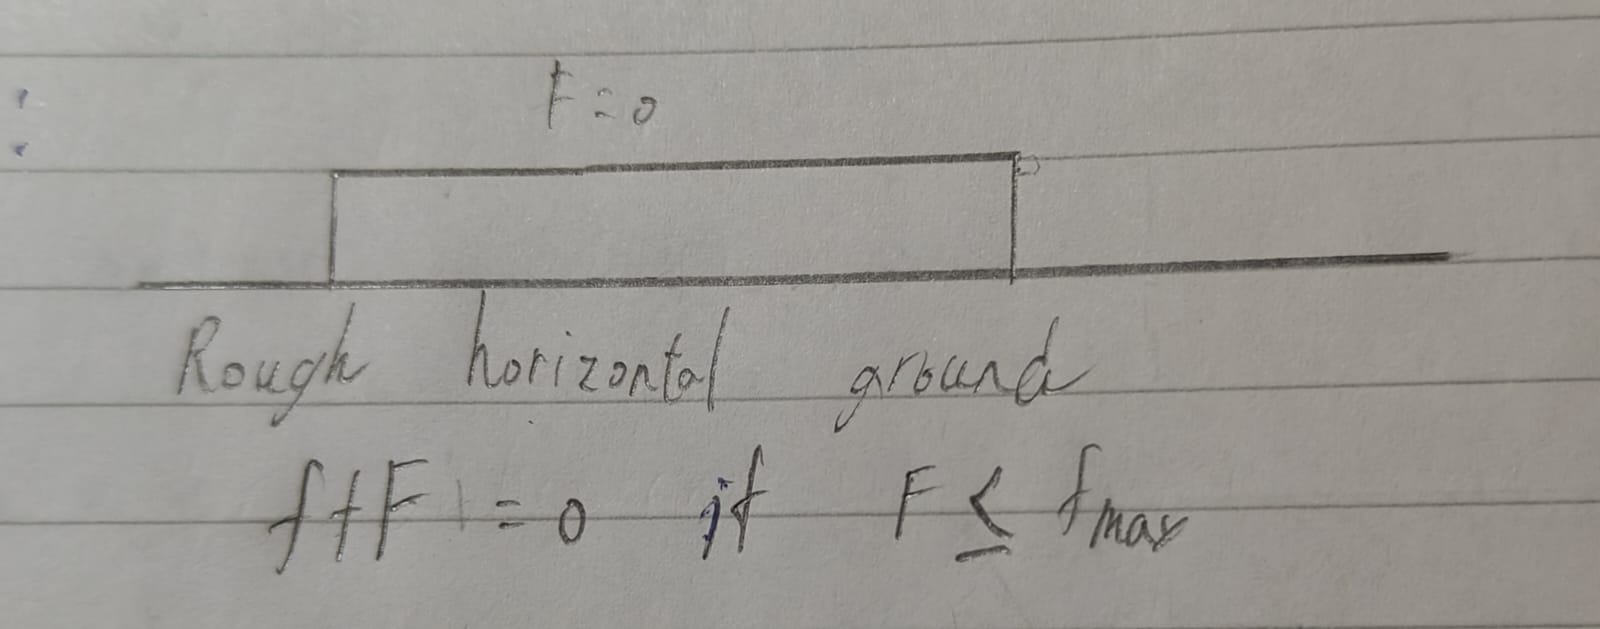 F = 0
Rough horizontal ground
f + F = 0 if F ≤ fmax